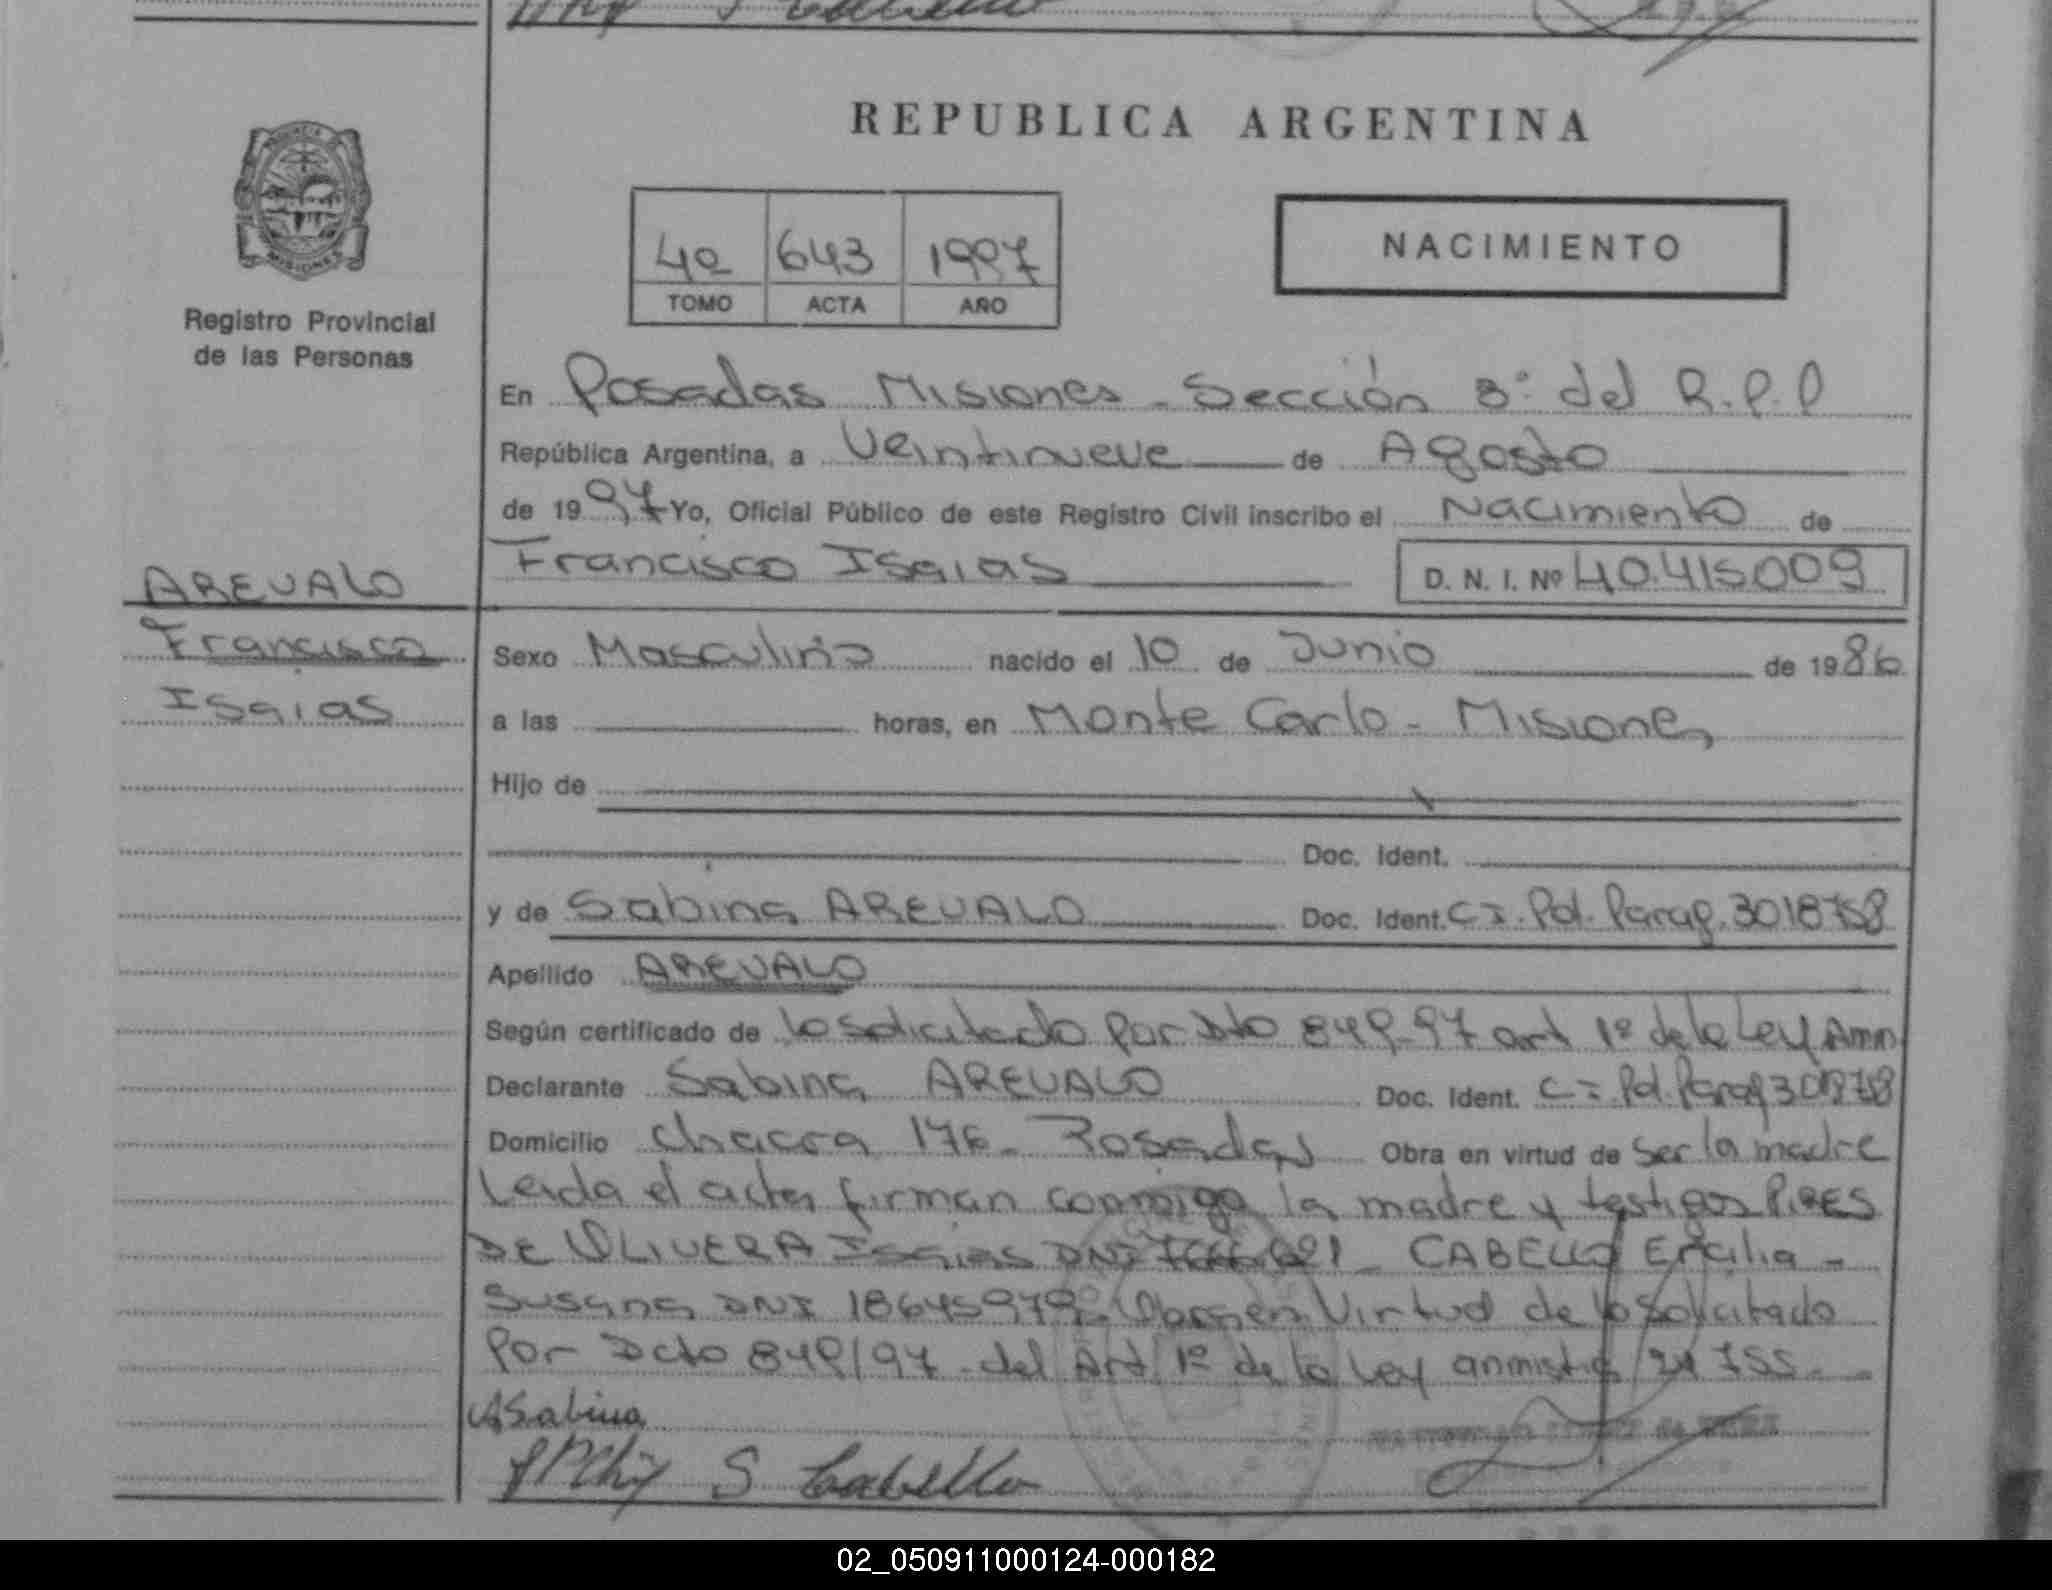 REPUBLICA ARGENTINA
MISIONES
Registro Provincial
de las Personas
4º 643 1997
TOMO ACTA AÑO
NACIMIENTO
En Posadas Misiones - Sección 3º del R.P.P
República Argentina, a Veintinueve de Agosto
de 1997 Yo, Oficial Público de este Registro Civil inscribo el Nacimiento de
Francisco Isaias D. N. I. Nº 40.415.009
AREVALO
Francisco
Isaias
Sexo Masculino nacido el 10 de Junio de 1986
a las horas, en Monte Carlo - Misiones
Hijo de
Doc. Ident.
y de Sabina AREVALO Doc. Ident. C I. Pol. Parag. 3018758
Apellido AREVALO
Según certificado de lo solicitado por Dto 849-97 art 1º de la Ley Amn
Declarante Sabina AREVALO Doc. Ident. C I. Pol. Parag
Domicilio Chacra 176 - Posadas Obra en virtud de ser la madre
Leida el acta firman conmigo la madre y testigos PIRES
DE OLIVERA Isaias DNI CABELLO Ercilia -
Susana DNI 18645979 Virtud de lo Solicitado
Por Dcto 849/97 - del Art 1º de la Ley anmistia 24755 -
A Sabina
S Cabello
02_050911000124-000182